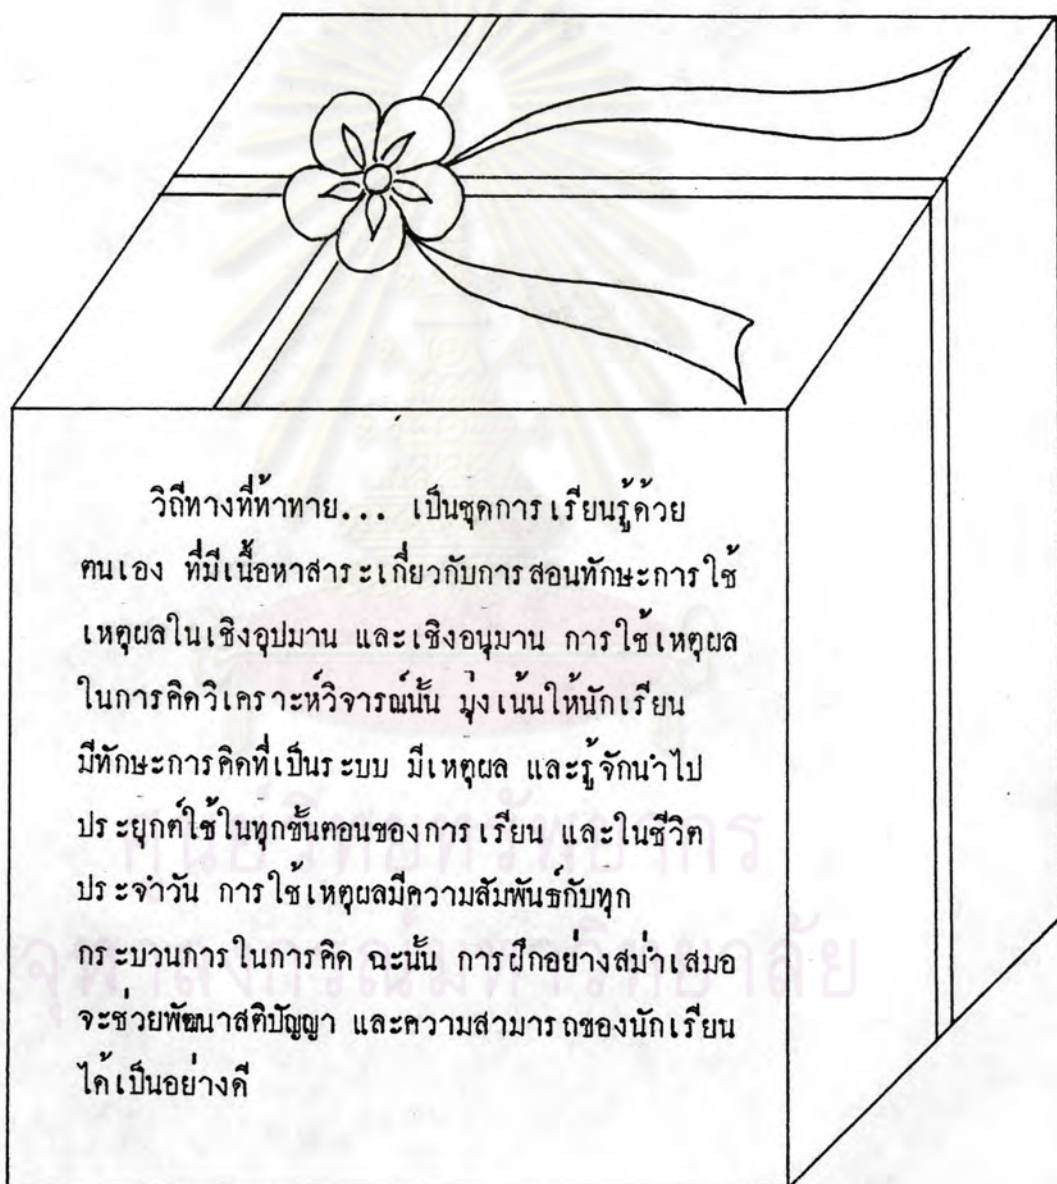 วิถีทางที่ท้าทาย... เป็นชุดการเรียนรู้ด้วย
ตนเอง ที่มีเนื้อหาสาระเกี่ยวกับการสอนทักษะการใช้
เหตุผลในเชิงอุปมาน และเชิงอนุมาน การใช้เหตุผล
ในการคิดวิเคราะห์วิจารณ์นั้น มุ่งเน้นให้นักเรียน
มีทักษะการคิดที่เป็นระบบ มีเหตุผล และรู้จักนำไป
ประยุกต์ใช้ในทุกขั้นตอนของการเรียน และในชีวิต
ประจำวัน การใช้เหตุผลมีความสัมพันธ์กับทุก
กระบวนการในการคิด ฉะนั้น การฝึกอย่างสม่ำเสมอ
จะช่วยพัฒนาสติปัญญา และความสามารถของนักเรียน
ได้เป็นอย่างดี
ศูนย์วิทยทรัพยากร
จุฬาลงกรณ์มหาวิทยาลัย